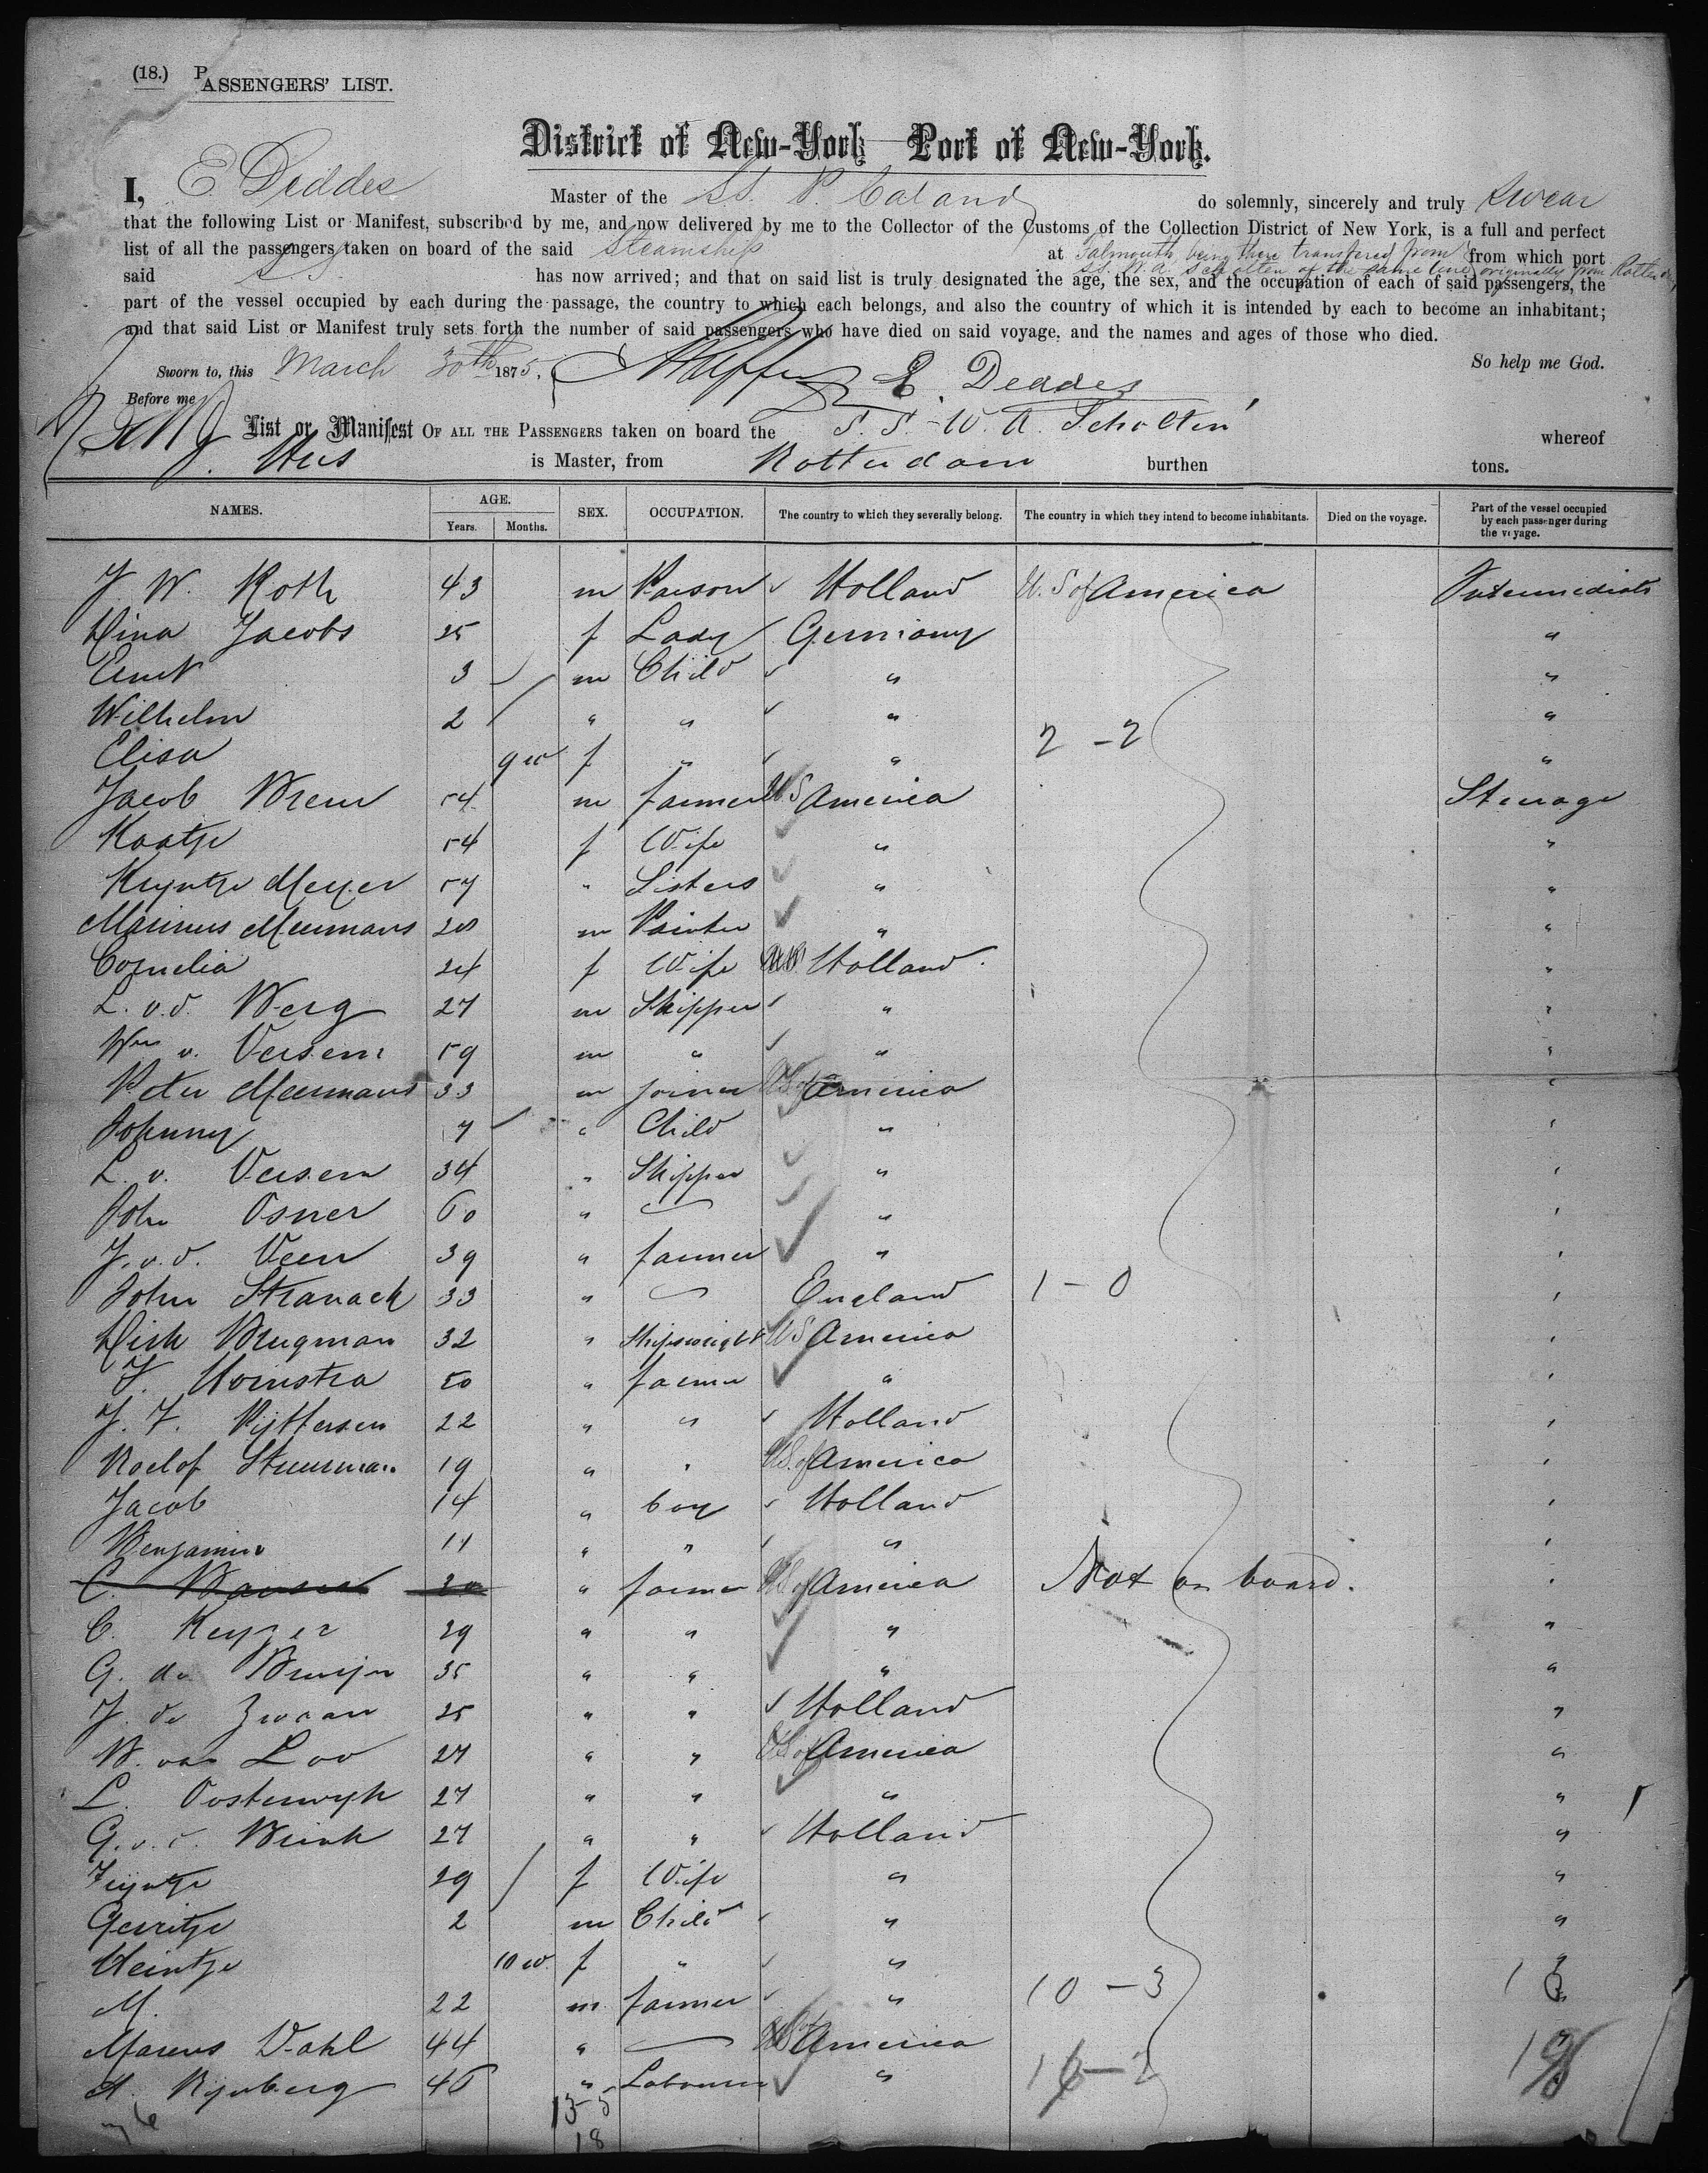 (18.) PASSENGERS' LIST.
District of New-York Port of New-York.
I, E. Deddes Master of the S.S. P. Caland do solemnly, sincerely and truly swear
that the following List or Manifest, subscribed by me, and now delivered by me to the Collector of the Customs of the Collection District of New York, is a full and perfect
list of all the passengers taken on board of the said Steamship at Falmouth, being there transfered from from which port
S.S. W. A. Scholten of the same line, originally from
said S.S. has now arrived; and that on said list is truly designated the age, the sex, and the occupation of each of said passengers, the
part of the vessel occupied by each during the passage, the country to which each belongs, and also the country of which it is intended by each to become an inhabitant;
and that said List or Manifest truly sets forth the number of said passengers who have died on said voyage, and the names and ages of those who died.
So help me God.
Sworn to, this March 30th 1875, E. Deddes
Before me
List or Manifest OF ALL THE PASSENGERS taken on board the S.S. W. A. Scholten whereof
is Master, from Rotterdam burthen tons.
NAMES. AGE. Years. Months. SEX. OCCUPATION. The country to which they severally belong. The country in which they intend to become inhabitants. Died on the voyage. Part of the vessel occupied by each passenger during the voyage.
J. W. Roth 43 m Parson Holland U.S. of America Intermediate
Dina Jacobs 25 f Lady Germany "
Ernst 3 m Child " "
Wilhelm 2 " " " "
Elisa 9 f " " 2-2 "
Jacob 54 m farmer U S America Steerage
Kaatje 54 f Wife " "
Kryntje Meyer 57 " Sisters " "
Marinus Meermans 28 m Painter " "
Cornelia 24 f Wife Holland "
L. v. d. Berg 27 m Skipper " "
Wm v. Versem 59 m " " "
Peter Meermans 33 m joiner U S of America "
Johnny 7 " Child " "
L. v. Versem 34 " Skipper " "
John Osner 60 " — " "
J. v. d. Veen 39 " farmer " "
John Stranack 33 " — England 1-0 "
Dirk Brugman 32 " Shipswright U S America "
J. Hoinstra 50 " farmer " "
J. F. Pijttersen 22 " " Holland "
Roelof Stuurman 19 " " U.S. of America "
Jacob 14 " boy Holland "
Benjamin 11 " " " "
C. " farmer U S of America Not on board. "
C. Keyzer 29 " " " "
G. de Bruijn 35 " " " "
J. de Zwaan 25 " " Holland "
B. van Loo 27 " " U S of America "
L. Oosterwyk 27 " " " "
G. v. d. Brink 27 " " Holland "
Fijntje 29 f Wife " "
Gerritje 2 m Child " "
Heintje 10 f " " "
M. 22 m farmer " 10-3
Marcus Dahl 44 " — U S of America
A. Rynberg 46 " Labourer "
13-5
18